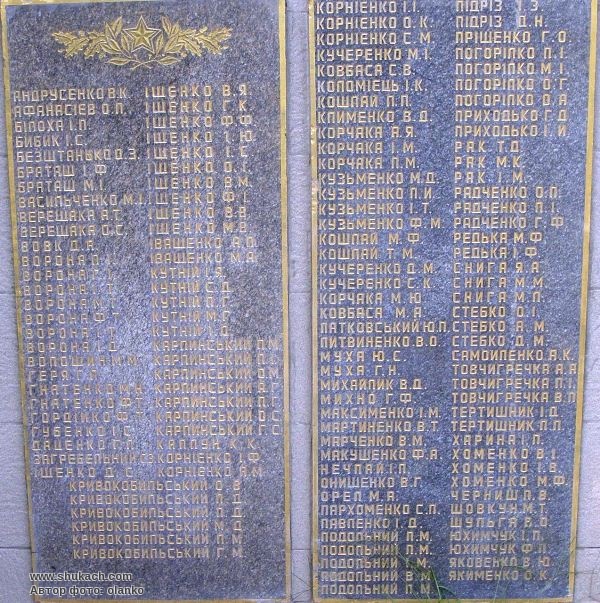 АНДРУСЕНКО В.К. ІЩЕНКО В.Я.
АФАНАСІЄВ О.П. ІЩЕНКО Г.К.
БІЛОХА І.П. ІЩЕНКО Ф.Ф.
БИБИК І.С. ІЩЕНКО І.Ю.
БЕЗШТАНЬКО О.З. ІЩЕНКО І.С.
БРАТАШ І.Ф. ІЩЕНКО О.І.
БРАТАШ М.І. ІЩЕНКО В.М.
ВАСИЛЬЧЕНКО М.І. ІЩЕНКО Ф.І.
ВЕРЕЩАКА А.Т. ІЩЕНКО В.А.
ВЕРЕЩАКА О.С. ІЩЕНКО М.В.
ВОВК Д.А. ІВАЩЕНКО А.О.
ВОРОНА ІВАЩЕНКО М.А.
ВОРОНА КУТНІЙ І.Я.
ВОРОНА КУТНІЙ С.Д.
ВОРОНА КУТНІЙ П.Г.
ВОРОНА Ф.Т. КУТНІЙ М.Г.
ВОРОНА КУТНІЙ
ВОРОНА КАРПИНСЬКИЙ
ВОЛОЩИН КАРПИНСЬКИЙ
ГЕРЯ КАРПИНСЬКИЙ
ГНАТЕНКО КАРПИНСЬКИЙ
ГНАТЕНКО Ф.Т. КАРПИНСЬКИЙ П.Г.
ГОРДІЙКО Ф.Т. КАРПИНСЬКИЙ О.С.
ГУБЕНКО І.С. КАРПИНСЬКИЙ Г.С.
ДАЦЕНКО КАПЛУН К.К.
ЗАГРЕБЕЛЬНИЙ КОРНІЄНКО І.Ф.
ІЩЕНКО Д.С. КОРНІЄНКО Я.М.
КРИВОКОБИЛЬСЬКИЙ О.В.
КРИВОКОБИЛЬСЬКИЙ П.Д.
КРИВОКОБИЛЬСЬКИЙ Л.Д.
КРИВОКОБИЛЬСЬКИЙ М.Д.
КРИВОКОБИЛЬСЬКИЙ П.М.
КРИВОКОБИЛЬСЬКИЙ Г.М.
КОРНІЄНКО І.І. ПІДРІЗ І.З.
КОРНІЄНКО О.К. ПІДРІЗ Д.Н.
КОРНІЄНКО С.М. ПРІЩЕНКО Г.О.
КУЧЕРЕНКО М.І. ПОГОРІЛКО П.І.
КОВБАСА С.В. ПОГОРІЛКО М.І.
КОЛОМІЄЦЬ І.К. ПОГОРІЛКО О.Г.
КОШЛАЙ П.П. ПОГОРІЛКО О.А.
КЛИМЕНКО В.Д. ПРИХОДЬКО Г.Д.
КОРЧАКА А.Я. ПРИХОДЬКО І.И.
КОРЧАКА І.М. РАК Т.Д.
КОРЧАКА П.М. РАК М.К.
КУЗЬМЕНКО М.Д. РАК І.М.
КУЗЬМЕНКО П.И. РАДЧЕНКО О.П.
КУЗЬМЕНКО І.Т. РАДЧЕНКО П.І.
КУЗЬМЕНКО Ф.М. РАДЧЕНКО Г.Ф.
КОШЛАЙ М.Ф. РЕДЬКА М.Ф.
КОШЛАЙ Т.М. РЕДЬКА І.Ф.
КУЧЕРЕНКО Д.М. СНИГА Я.А.
КУЧЕРЕНКО С.К. СНИГА М.М.
КОРЧАКА М.Ю. СНИГА М.П.
КОВБАСА М.А. СТЕБКО О.І.
ЛАТКОВСЬКИЙ Ю.П. СТЕБКО А.М.
ЛИТВИНЕНКО В.О. СТЕБКО Д.М.
МУХА Ю.С. САМОЙЛЕНКО А.К.
МУХА Г.Н. ТОВЧИГРЕЧКА А.А.
МИХАЙЛИК В.Д. ТОВЧИГРЕЧКА П.І.
МИХНО Г.Ф. ТОВЧИГРЕЧКА В.П.
МАКСИМЕНКО І.М. ТЕРТИШНИК І.Д.
МАРТИНЕНКО В.Т. ТЕРТИШНИК П.П.
МАРЧЕНКО В.М. ХАРИНА І.П.
МАКУШЕНКО Ф.А. ХОМЕНКО В.І.
НЕЧПАЙ І.П. ХОМЕНКО І.В.
ОНИЩЕНКО В.Г. ХОМЕНКО М.Ф.
ОРЕЛ М.А. ЧЕРНИШ П.В.
ПАРХОМЕНКО С.П. ШОВКУН М.Т.
ПАВЛЕНКО І.Д. ШУЛЬГА В.О.
ПОДОЛЬНИЙ П.М. ЮХИМЧУК І.П.
ПОДОЛЬНИЙ П.М. ЮХИМЧУК Ф.П.
ПОДОЛЬНИЙ І.М. ЯКОВЕНКО В.Ю.
ПОДОЛЬНИЙ В.М. ЯКИМЕНКО О.К.
ПОДОЛЬНИЙ П.М.
www.shukach.com
Автор фото: olanko